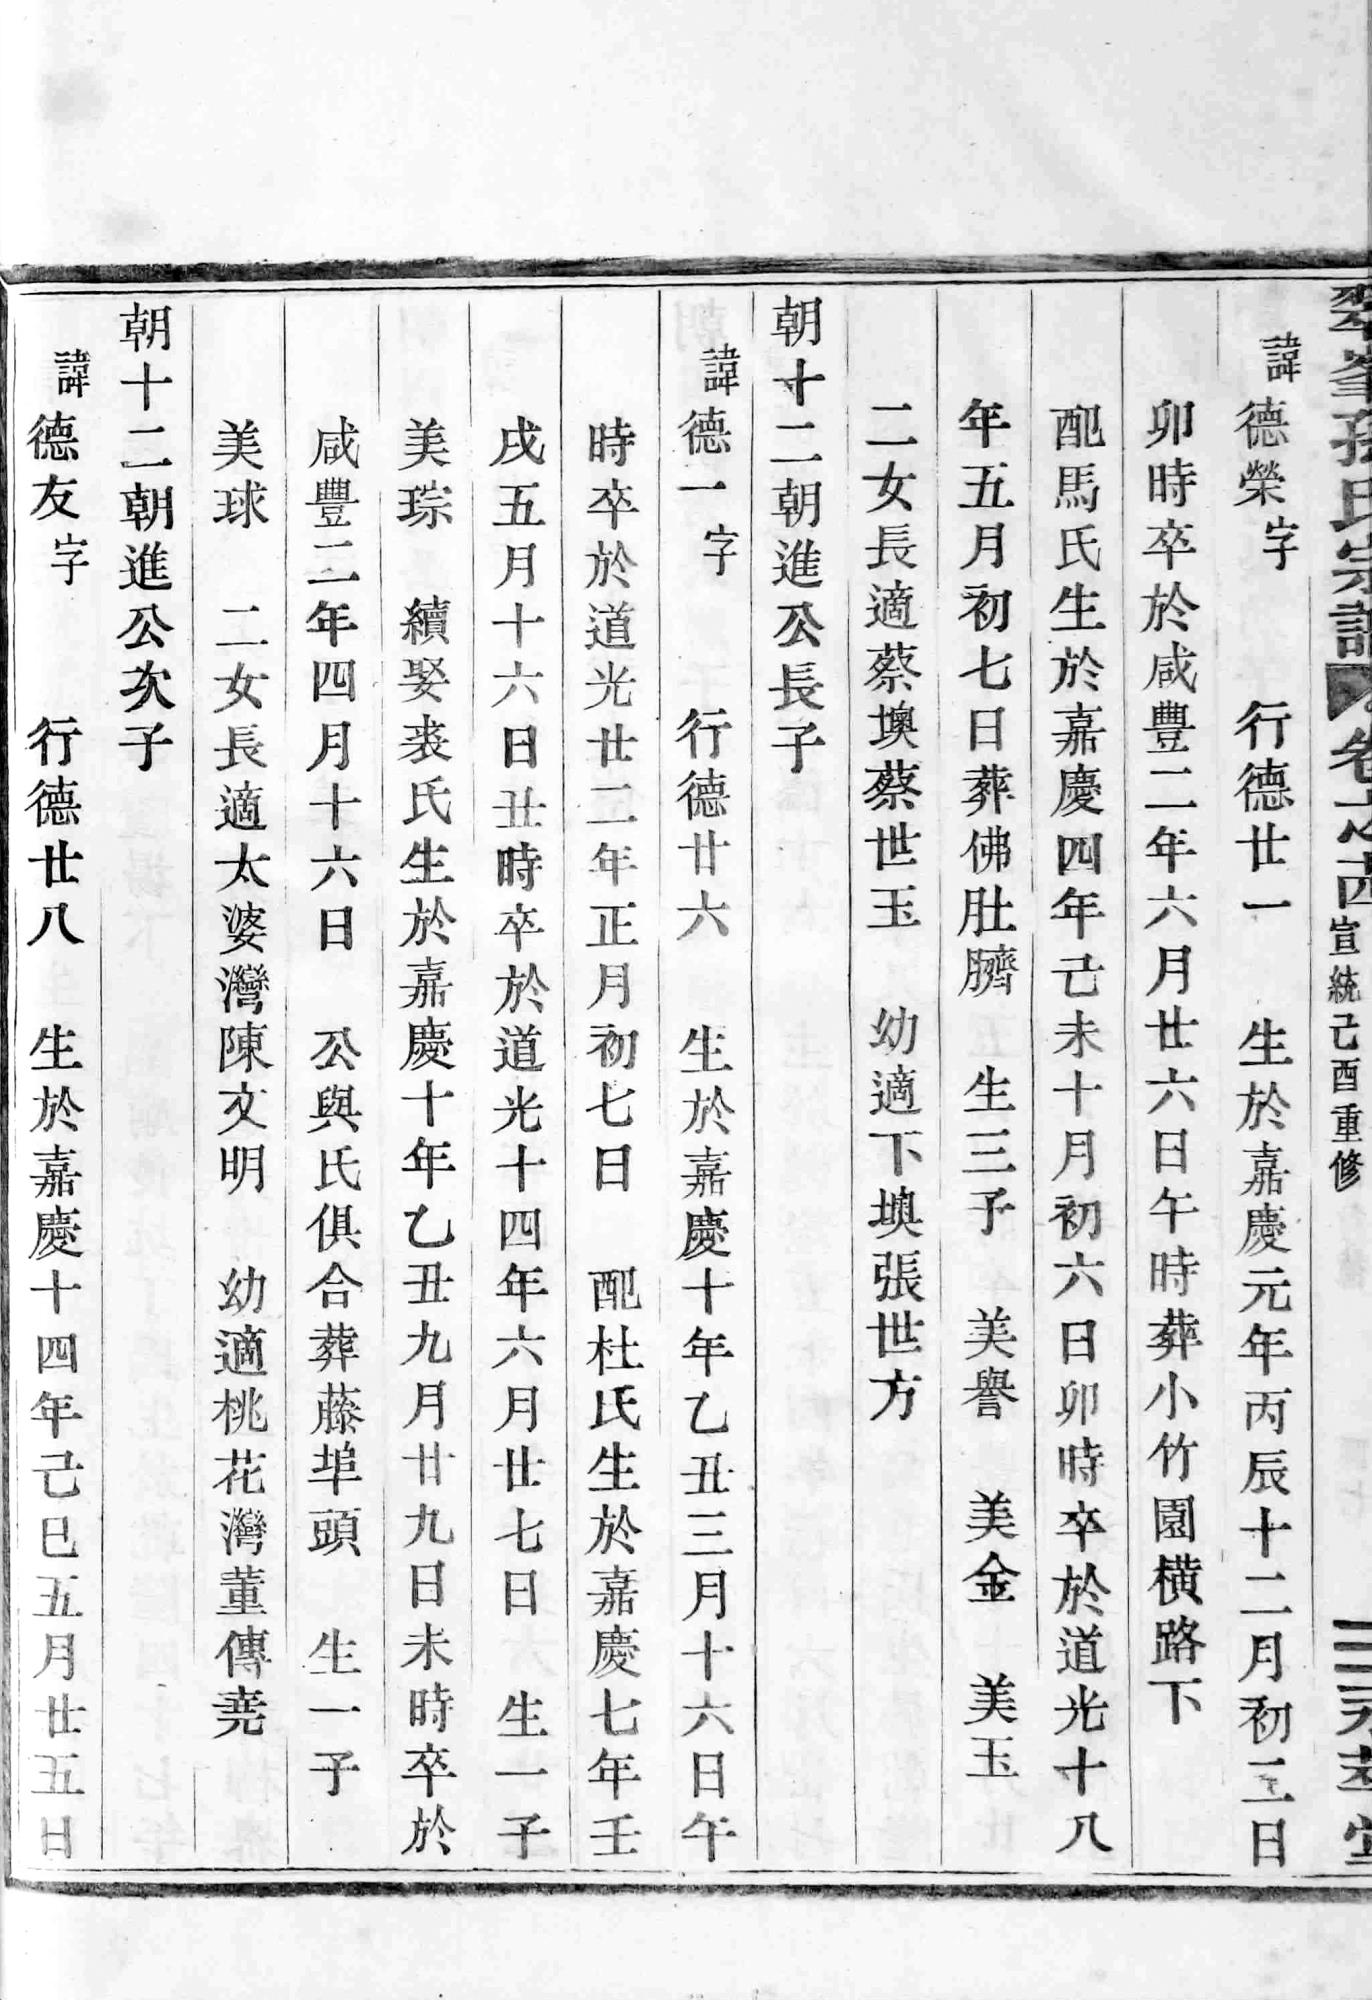 翠峯孫氏宗譜 卷之西 宣統己酉重修
諱德榮字 行德廿一 生於嘉慶元年丙辰十二月初三日
卯時卒於咸豐二年六月廿六日午時葬小竹園橫路下
配馬氏生於嘉慶四年己未十月初六日卯時卒於道光十八
年五月初七日葬佛肚臍 生三子 美譽 美金 美玉
二女長適蔡墺蔡世玉 幼適下墺張世方
朝十二朝進公長子
諱德一字 行德廿六 生於嘉慶十年乙丑三月十六日午
時卒於道光廿二年正月初七日 配杜氏生於嘉慶七年壬
戌五月十六日丑時卒於道光十四年六月廿七日 生一子
美琮 續娶裘氏生於嘉慶十年乙丑九月廿九日未時卒於
咸豐二年四月十六日 公與氏俱合葬藤埠頭 生一子
美球 二女長適太婆灣陳文明 幼適桃花灣董傳堯
朝十二朝進公次子
諱德友字 行德廿八 生於嘉慶十四年己巳五月廿五日